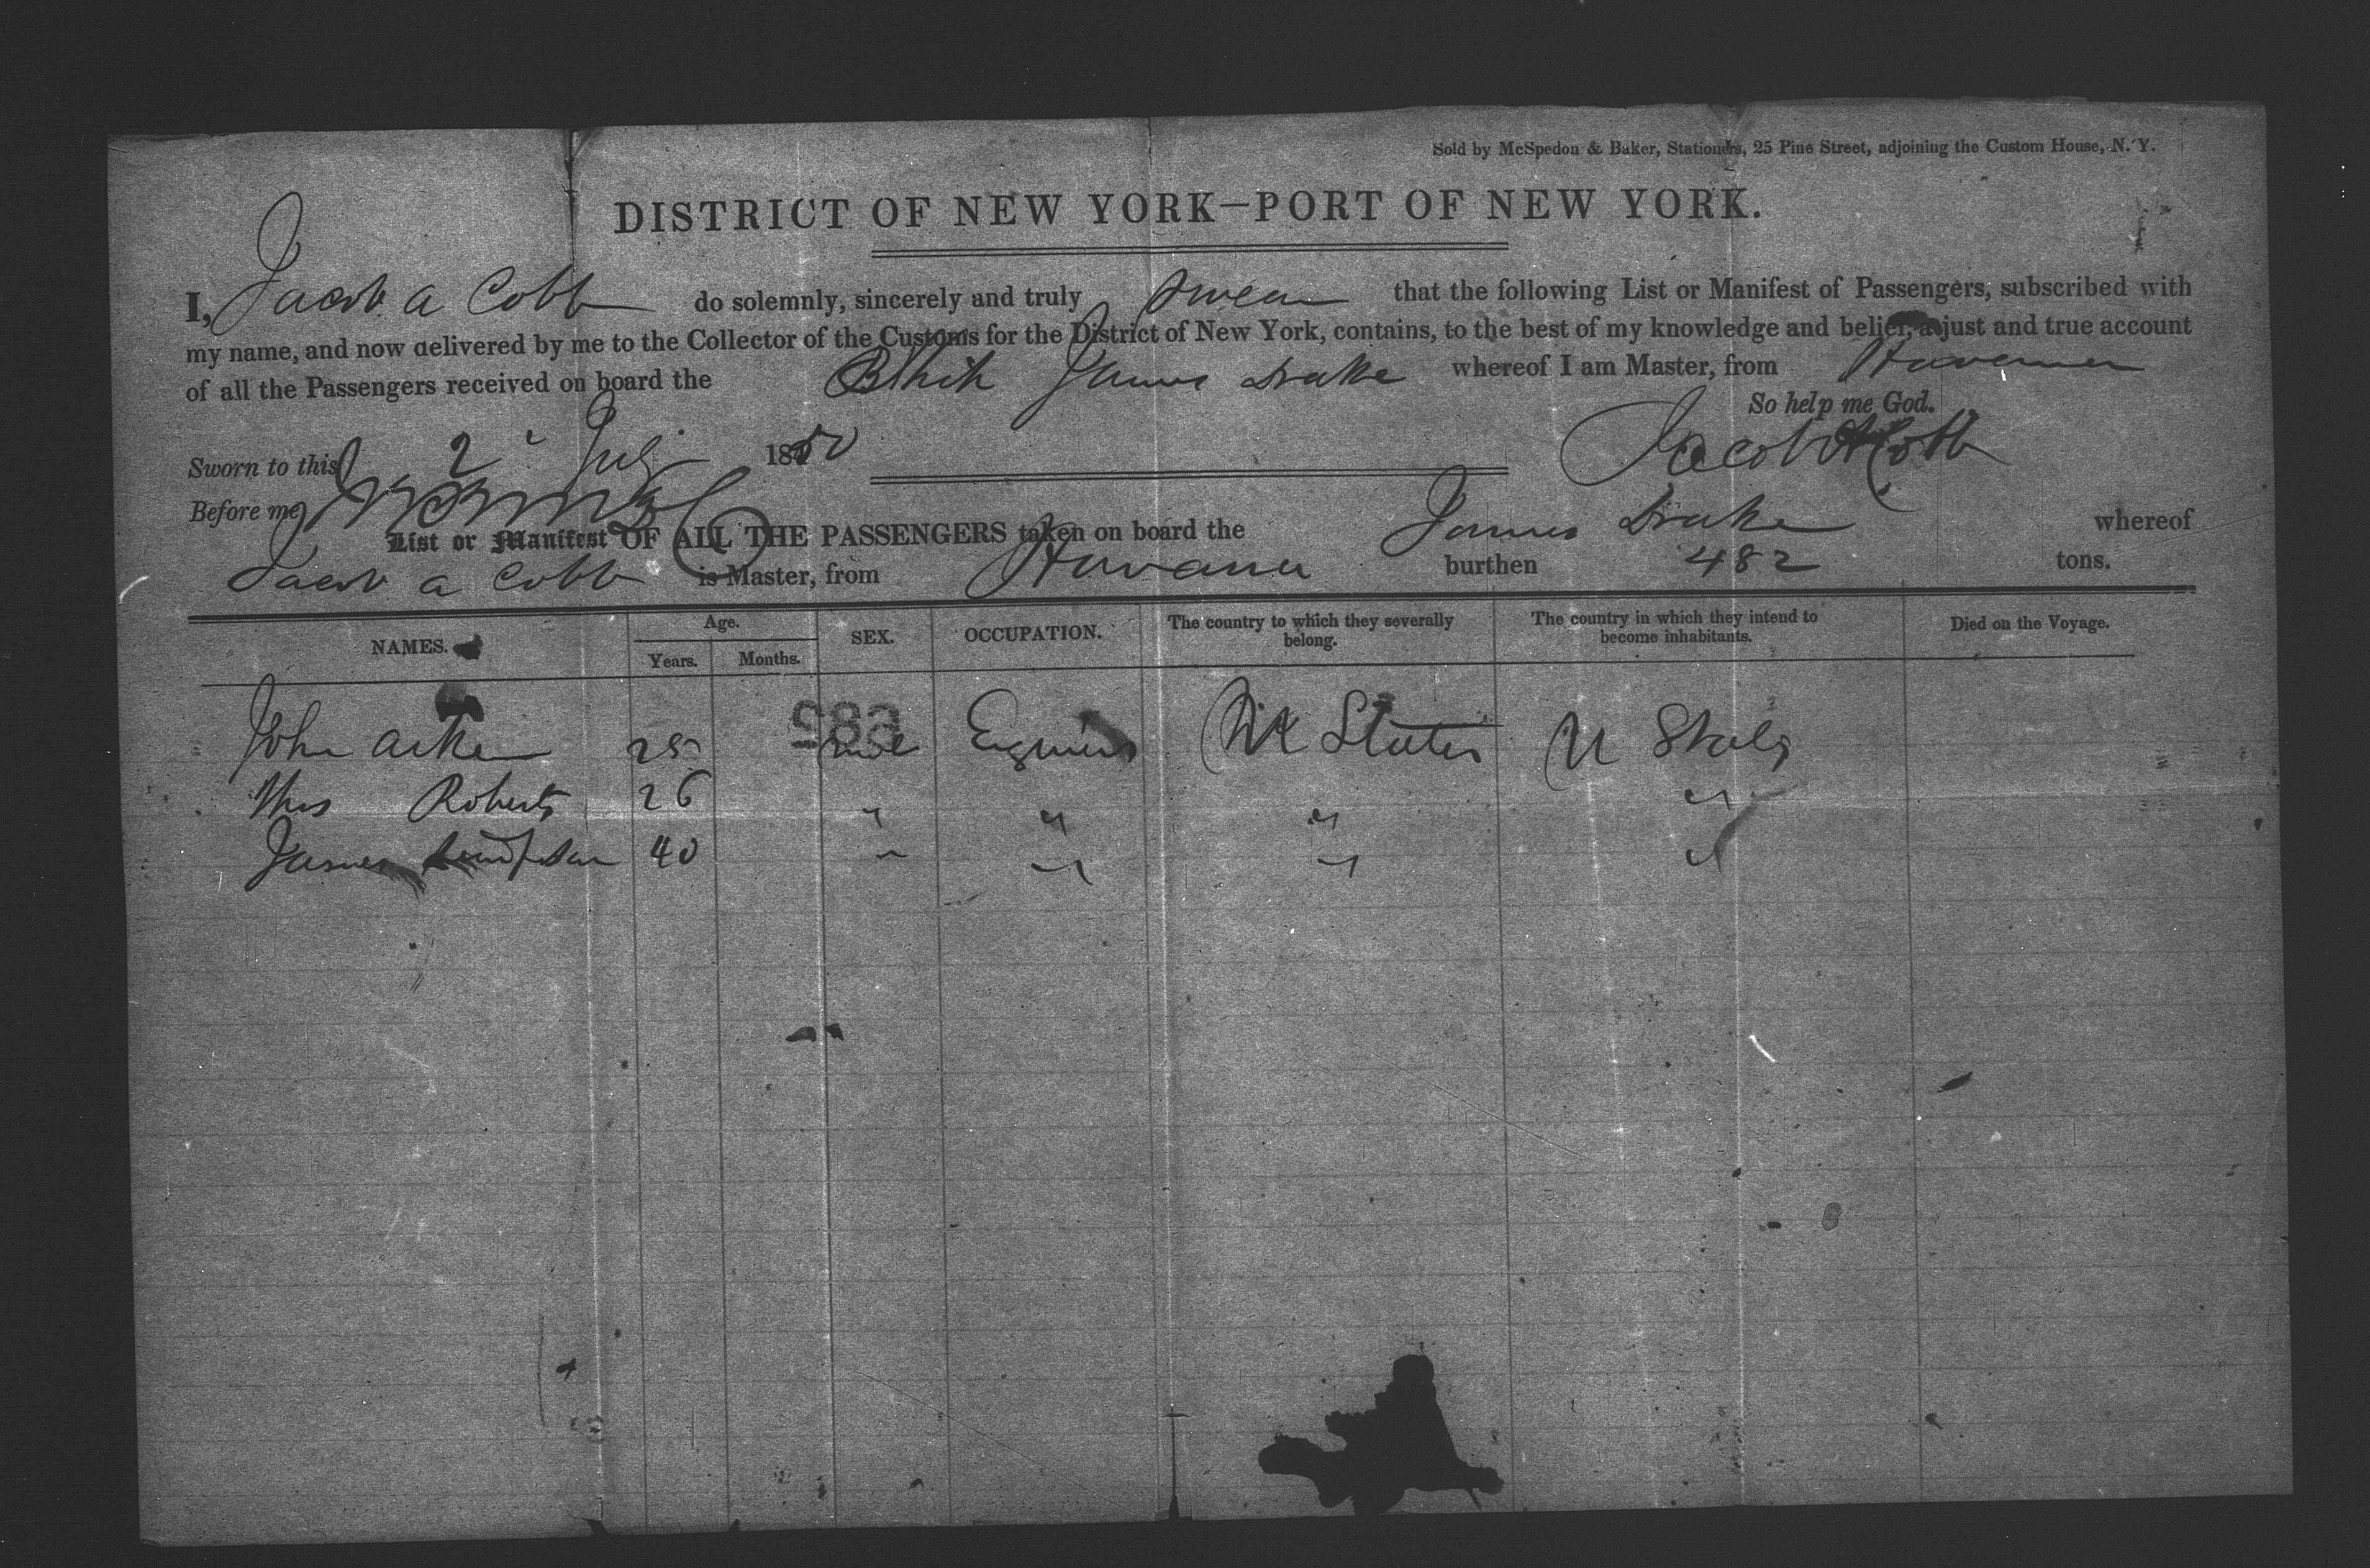 Sold by McSpedon & Baker, Stationers, 25 Pine Street, adjoining the Custom House, N. Y.
DISTRICT OF NEW YORK—PORT OF NEW YORK.
I, Jacob A Cobb do solemnly, sincerely and truly swear that the following List or Manifest of Passengers, subscribed with
my name, and now delivered by me to the Collector of the Customs for the District of New York, contains, to the best of my knowledge and belief, a just and true account
of all the Passengers received on board the James Drake whereof I am Master, from Havanna
So help me God.
Sworn to this 2 July 1850 Jacob A Cobb
Before me
List or Manifest OF ALL THE PASSENGERS taken on board the James Drake whereof
Jacob A Cobb is Master, from Havana burthen 482 tons.
NAMES. Age. Years. Months. SEX. OCCUPATION. The country to which they severally belong. The country in which they intend to become inhabitants. Died on the Voyage.
682
John 25 male Engineer States U States
Thos Roberts 26 " " " "
James 40 " " " "